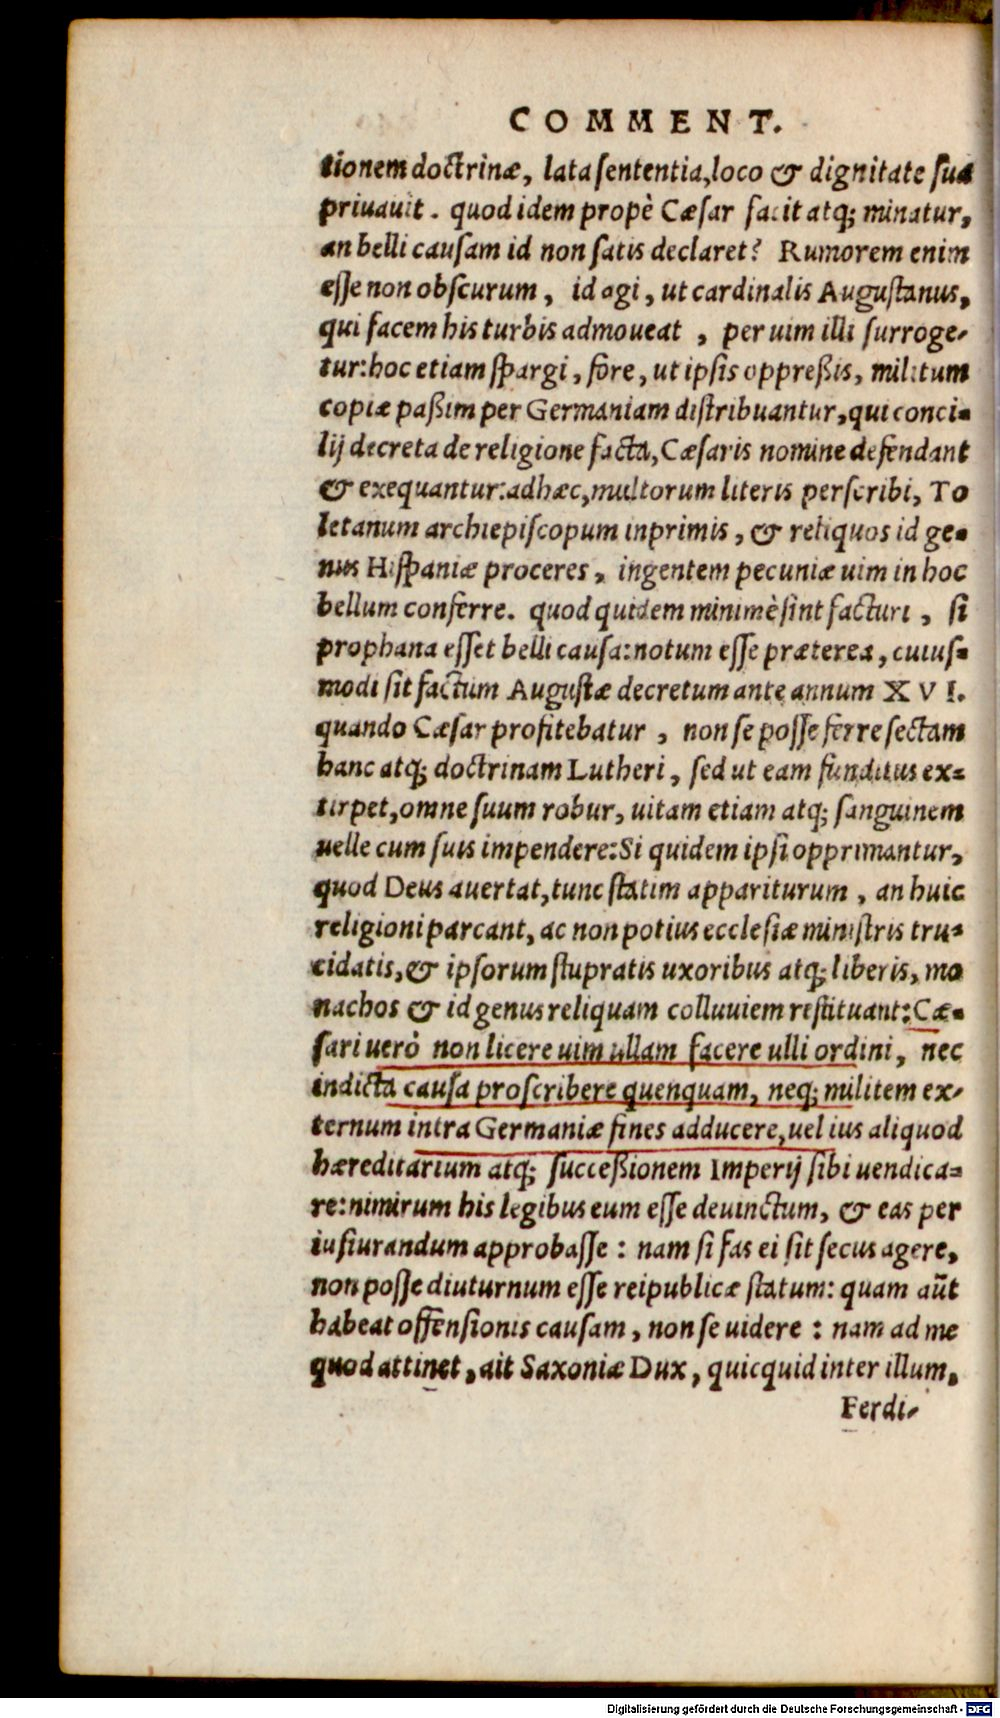 COMMENT.
tionem doctrinæ, lata sententia, loco & dignitate sua
priuauit. quod idem propè Cæsar facit atq; minatur,
an belli causam id non satis declaret? Rumorem enim
esse non obscurum, id agi, ut cardinalis Augustanus,
qui facem his turbis admoueat, per uim illi surroge-
tur: hoc etiam spargi, fore, ut ipsis oppreßis, militum
copiæ paßim per Germaniam distribuantur, qui conci-
lij decreta de religione facta, Cæsaris nomine defendant
& exequantur: ad hæc, multorum literis perscribi, To
letanum archiepiscopum inprimis, & reliquos id ge-
nus Hispaniæ proceres, ingentem pecuniæ uim in hoc
bellum conferre. quod quidem minimè sint facturi, si
prophana esset belli causa: notum esse præterea, cuius-
modi sit factum Augustæ decretum ante annum XVI.
quando Cæsar profitebatur, non se posse ferre sectam
hanc atq; doctrinam Lutheri, sed ut eam funditus ex-
tirpet, omne suum robur, uitam etiam atq; sanguinem
uelle cum suis impendere: Si quidem ipsi opprimantur,
quod Deus auertat, tunc statim appariturum, an huic
religioni parcant, ac non potius ecclesiæ ministris tru-
cidatis, & ipsorum stupratis uxoribus atq; liberis, mo
nachos & id genus reliquam colluuiem restituant: Cæ-
sari uerò non licere uim ullam facere ulli ordini, nec
indicta causa proscribere quenquam, neq; militem ex-
ternum intra Germaniæ fines adducere, uel ius aliquod
hæreditarium atq; succeßionem Imperij sibi uendica-
re: nimirum his legibus eum esse deuinctum, & eas per
iusiurandum approbasse: nam si fas ei sit secus agere,
non posse diuturnum esse reipublicæ statum: quam aũt
habeat offensionis causam, non se uidere: nam ad me
quod attinet, ait Saxoniæ Dux, quicquid inter illum,
Ferdi-
Digitalisierung gefördert durch die Deutsche Forschungsgemeinschaft - DFG